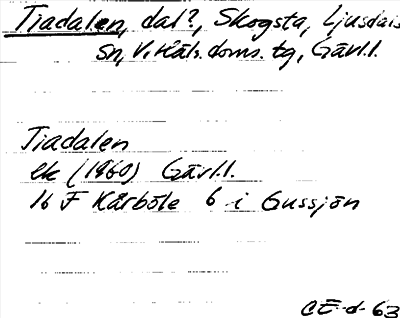 Tiadalen, dal?, Skogsta, Ljusdals
sn, V. Häls. doms. tg, Gävl.l.
Tiadalen
ek (1960) Gävl.l.
16 F Kårböle 6 i Gussjön
CE-d-63